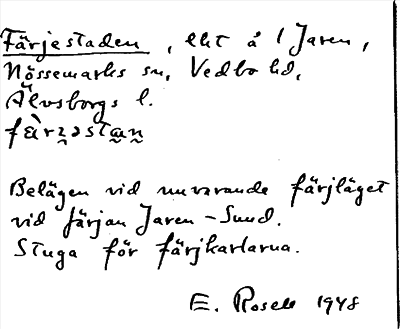 Färjestaden, lht å 1 Jaren,
Nössemarks sn, Vedbo hd,
Älvsborgs l.
fä̀rz̮əsta̮n̮
Belägen vid nuvarande färjläget
vid färjan Jaren-Sund.
Stuga för färjkarlarna.
E. Rosell 1948